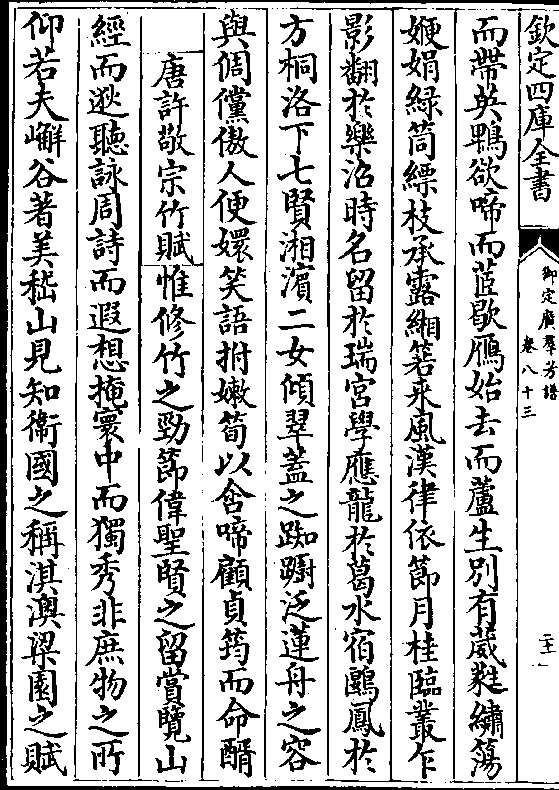 欽定四庫全書
御定廣羣芳譜
卷八十三
二十一
而帶英鴨欲啼而苽歇鴈始去而蘆生別有葳蕤繡蕩
㛹娟緑筒縹枝承露緗箬來風漢律依節月桂臨叢乍
影翻於樂沼時名留於瑞宮學應龍於葛水宿鷗鳳於
方桐洛下七賢湘濱二女傾翠葢之踟躕泛蓮舟之容
與倜儻傲人便嬛笑語拊嫩筍以含啼顧貞筠而命醑
唐許敬宗竹賦惟修竹之勁節偉聖賢之留賞覽山
經而逖聽詠周詩而遐想掩寰中而獨秀非庶物之所
仰若夫嶰谷著美嵇山見知衞國之稱淇澳梁園之賦